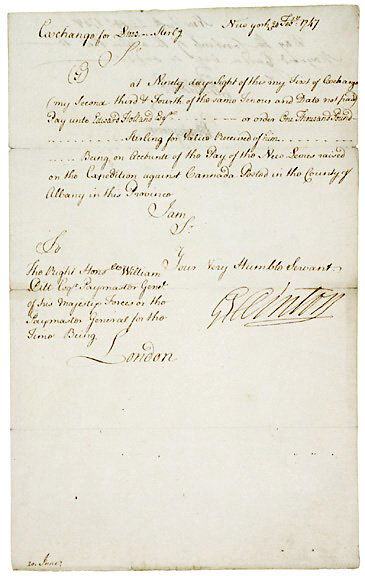 Exchange for £1000 Sterlg New york 20 Febry. 1747
Sr.
At Ninety days Sight of this my First of Exchange
(my Second third & Fourth of the same Tenour and Date not paid)
Pay unto Edward Holland Esqr. or order One Thousand Pound
Sterling for Value Received of him
Being on Account of the Pay of the New Levies raised
on the Expedition against Cannada Posted in the County of
Albany in this Province
I am
Sr.
To
The Right Honble William Your Very Humble Servant
Pitt Esqr. Paymaster Genl.
of his Majestys Forces or the
Paymaster General for the
Time Being
GClinton
London